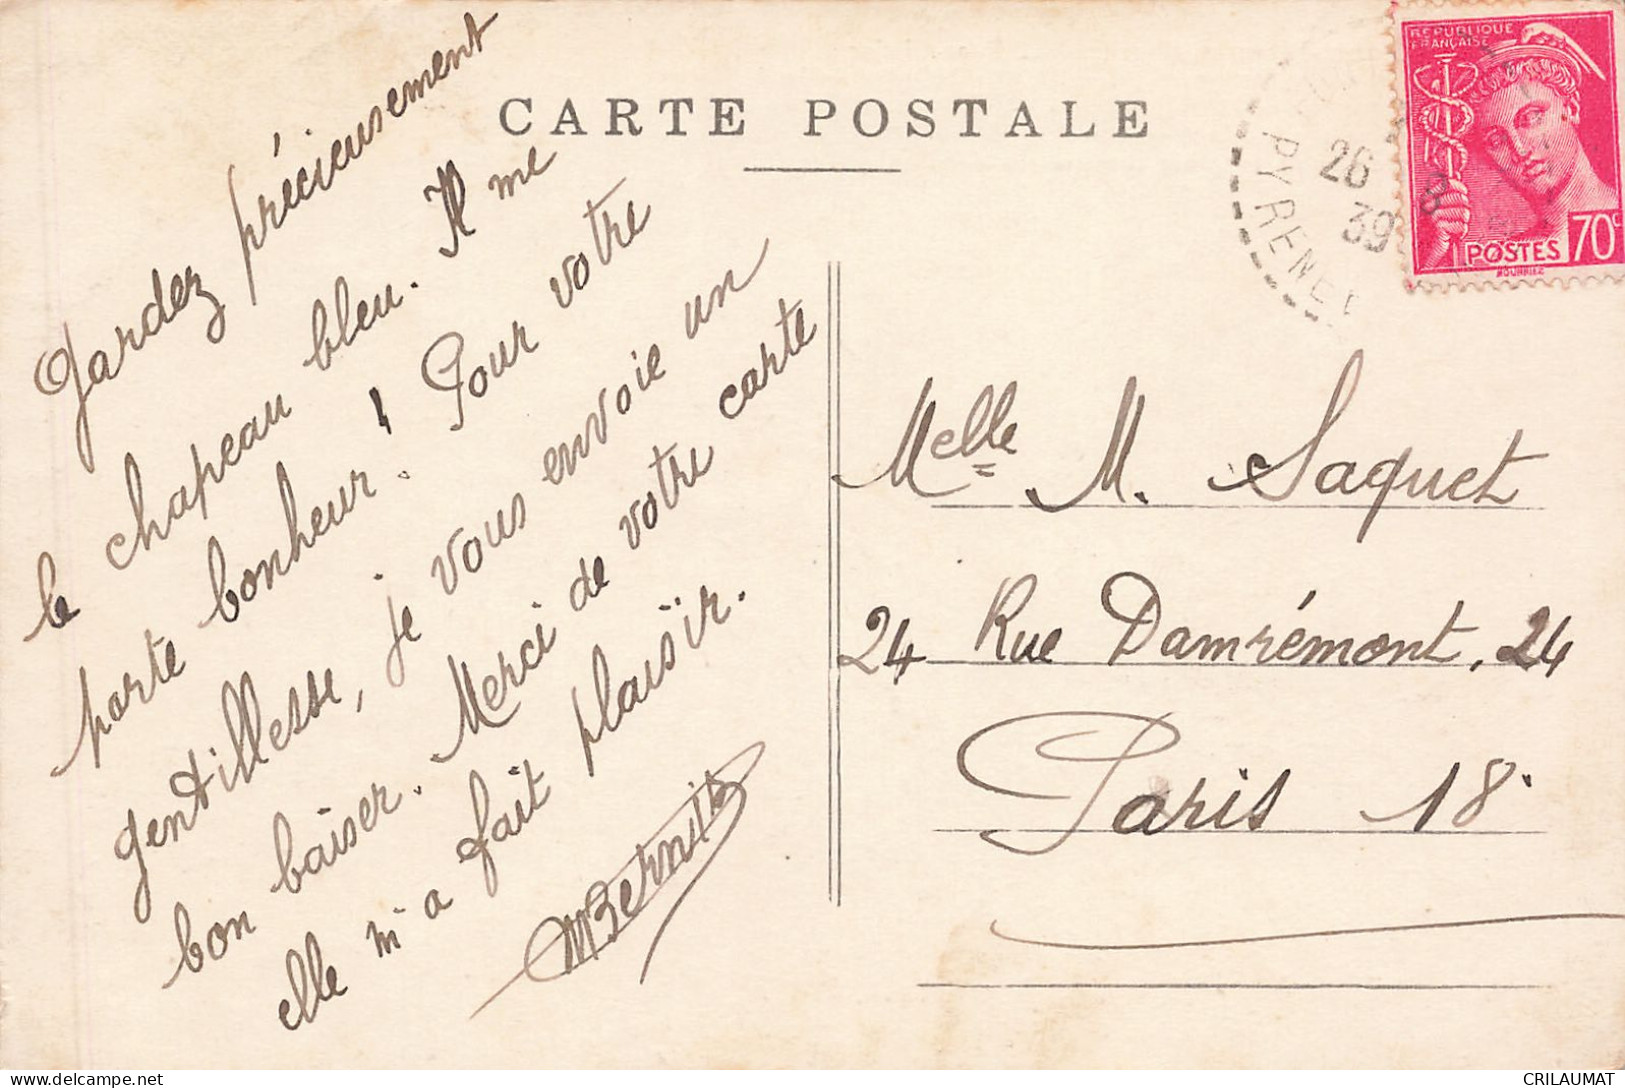 CARTE POSTALE
Gardez précieusement
le chapeau bleu. Il me
porte bonheur! Pour votre
gentillesse, je vous envoie un
bon baiser. Merci de votre carte
elle m'a fait plaisïr.
MBernis
REPUBLIQUE
FRANÇAISE
POSTES 70c
MOURRIEZ
26
39
PYRENEE
Melle M. Saquet
24 Rue Damrémont, 24
Paris 18
delcampe.net
CRILAUMAT